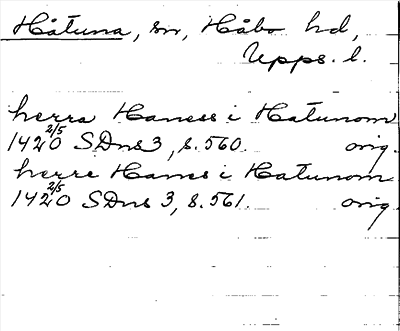 Håtuna, sn, Håbo hd,
Upps. l.
herra Haness i Hatunom
1420 2/5 SDns 3, s. 560. orig.
herre Hanes i Hatunom
1420 2/5 SDns 3, s. 561. orig